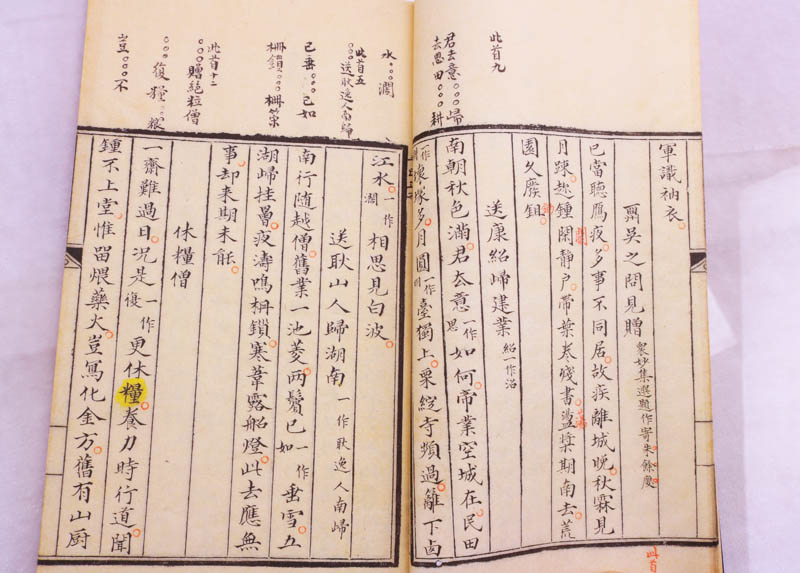 此首九
君去意○○○歸
去思田○○○耕
軍識衲衣。
吳之問見贈 眾妙集選題作寄朱餘慶
已當聽鴈夜。多事不同居。故疾離城晚。秋霖見
月踈。趂鍾開靜戶。帶葉卷殘書。盪槳期南去。荒
園久廢鉏。
送康紹歸建業 紹一作沿
南朝秋色滿。君去意一作思如何。帝業空城在。民田
一作壞塚多。月圓一作臺獨上。栗綻寺頻過。離下
水○○○澗
此首五
○○○送耿逸人南歸
已垂○○○已如
柵鎖○○○柵
此首十二
○○○贈絕粒僧
○○○復糧○○○粮
豈○○○不
江水。一作澗相思見白波。
送耿山人歸湖南 一作耿逸人南歸
南行隨越僧。舊業一池菱。兩鬢已一作如垂雪。五
湖歸挂罾。夜濤鳴柵鎖。寒葦露船燈。此去應無
事。却来期未能。
休糧僧
一齋難過日。況是一作復更休糧。養力時行道。聞
鍾不上堂。惟留煨藥火。豈寫化金方。舊有山厨
此首